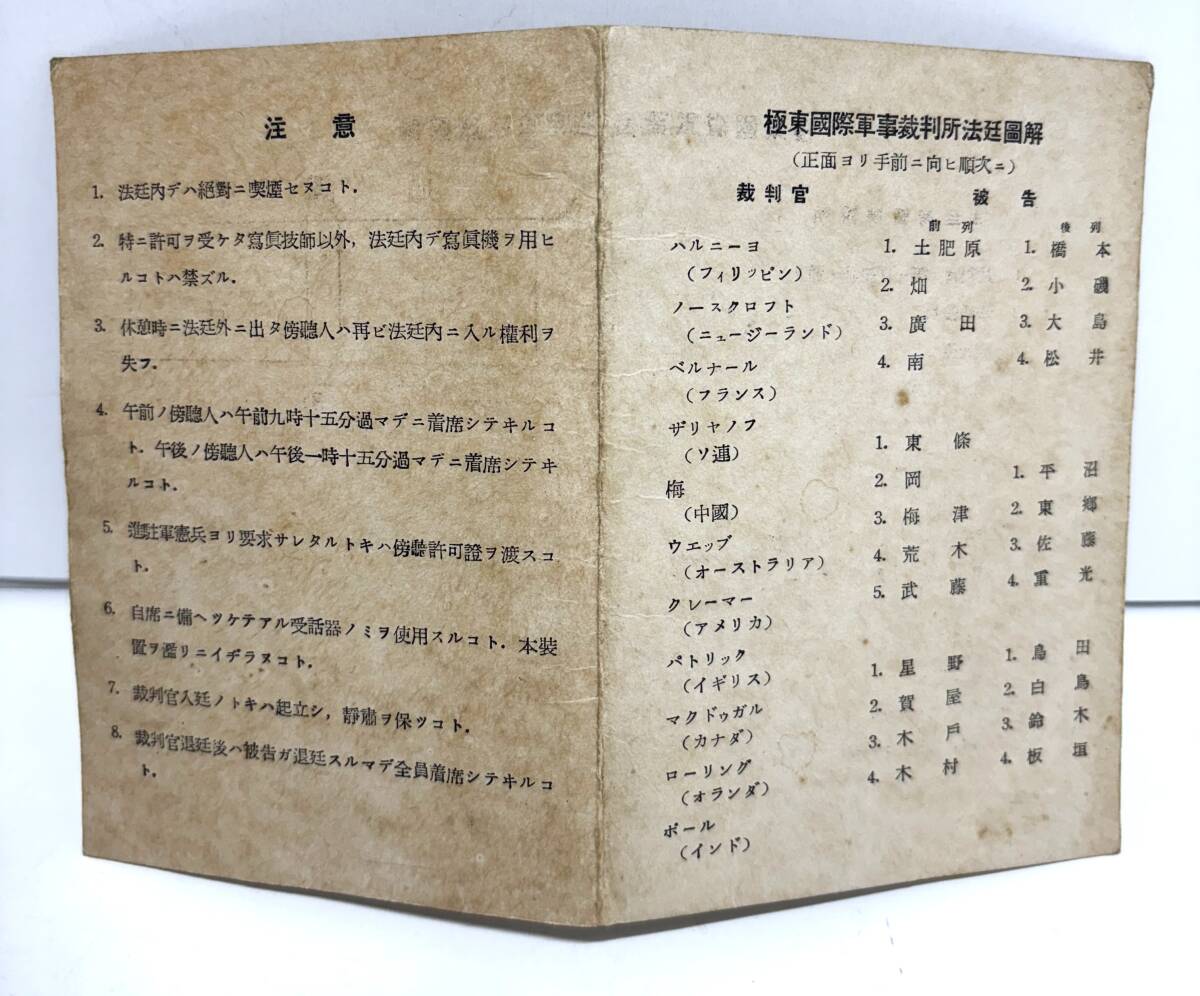 注意
1. 法廷內デハ絕對ニ喫煙セヌコト.
2. 特ニ許可ヲ受ケタ寫眞技師以外，法廷內デ寫眞機ヲ用ヒ
ルコトハ禁ズル.
3. 休憩時ニ法廷外ニ出タ傍聽人ハ再ビ法廷內ニ入ル權利ヲ
失フ.
4. 午前ノ傍聽人ハ午前九時十五分過マデニ着席シテキルコ
ト. 午後ノ傍聽人ハ午後一時十五分過マデニ着席シテキ
ルコト.
5. 進駐軍憲兵ヨリ要求サレタルトキハ傍聽許可證ヲ渡スコ
ト.
6. 自席ニ備ヘツケテアル受話器ノミヲ使用スルコト. 本裝
置ヲ濫リニイヂラヌコト.
7. 裁判官入廷ノトキハ起立シ，靜肅ヲ保ツコト.
8. 裁判官退廷後ハ被告ガ退廷スルマデ全員着席シテキルコ
ト.
極東國際軍事裁判所法廷圖解
(正面ヨリ手前ニ向ヒ順次ニ)
裁判官
ハルニーヨ
(フィリッピン)
ノースクロフト
(ニュージーランド)
ベルナール
(フランス)
ザリヤノフ
(ソ連)
梅
(中國)
ウエッブ
(オーストラリア)
クレーマー
(アメリカ)
パトリック
(イギリス)
マクドゥガル
(カナダ)
ローリング
(オランダ)
ボール
(インド)
被告
前列
1. 土肥原
2. 畑
3. 廣田
4. 南
1. 東條
2. 岡
3. 梅津
4. 荒木
5. 武藤
1. 星野
2. 賀屋
3. 木戸
4. 木村
後列
1. 橋本
2. 小磯
3. 大島
4. 松井
1. 平沼
2. 東鄕
3. 佐藤
4. 重光
1. 島田
2. 白鳥
3. 鈴木
4. 板垣